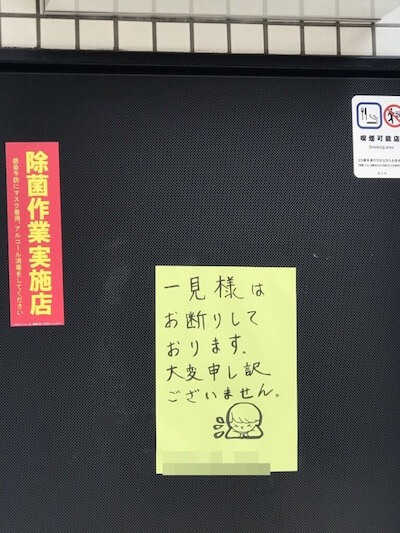 喫煙可能店
Smoking area
除菌作業実施店
感染予防にマスク着用、アルコール消毒をしてください
一見様は
お断りして
おります。
大変申し訳
ございません。